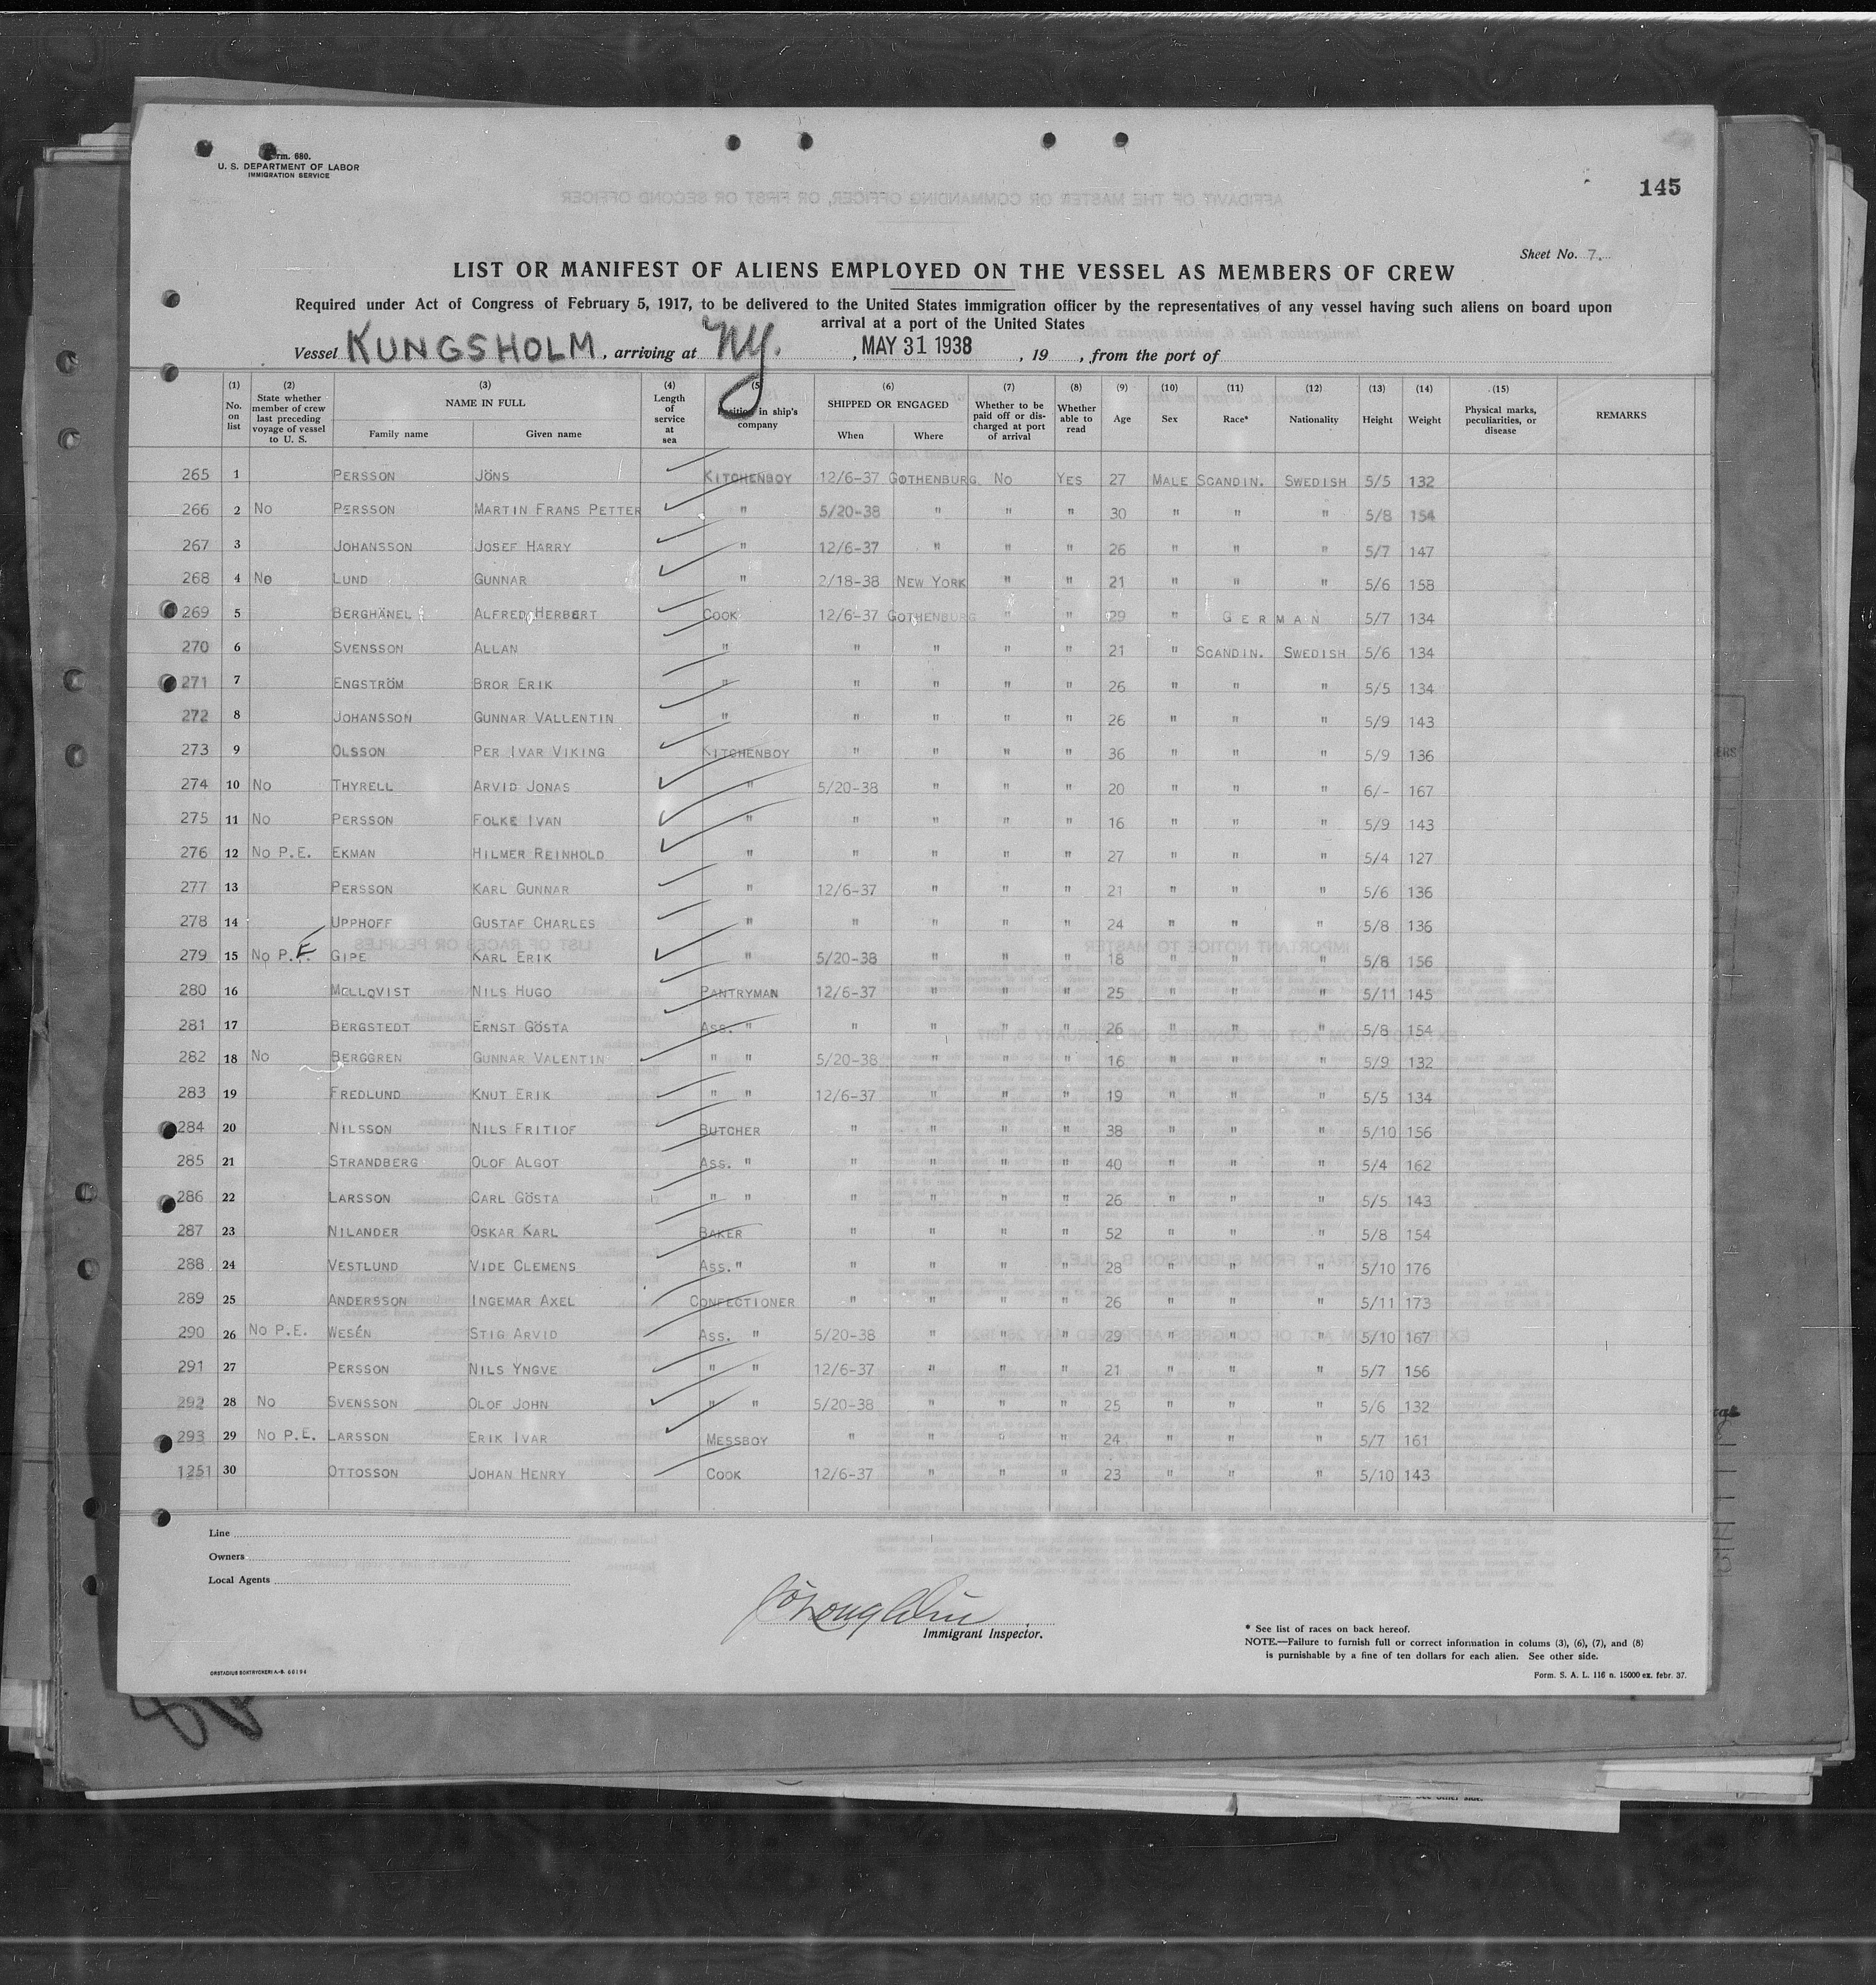 Form. 680.
U. S. DEPARTMENT OF LABOR
IMMIGRATION SERVICE
145
Sheet No. 7.
LIST OR MANIFEST OF ALIENS EMPLOYED ON THE VESSEL AS MEMBERS OF CREW
Required under Act of Congress of February 5, 1917, to be delivered to the United States immigration officer by the representatives of any vessel having such aliens on board upon
arrival at a port of the United States
Vessel KUNGSHOLM, arriving at NY., MAY 31 1938, 19 , from the port of
(1) No. on list (2) State whether member of crew last preceding voyage of vessel to U. S. (3) NAME IN FULL Family name Given name (4) Length of service at sea (5) Position in ship's company (6) SHIPPED OR ENGAGED When Where (7) Whether to be paid off or discharged at port of arrival (8) Whether able to read (9) Age (10) Sex (11) Race* (12) Nationality (13) Height (14) Weight (15) Physical marks, peculiarities, or disease REMARKS
265 1 PERSSON JÖNS KITCHENBOY 12/6-37 GOTHENBURG No YES 27 MALE SCANDIN. SWEDISH 5/5 132
266 2 No PERSSON MARTIN FRANS PETTER " 5/20-38 " " " 30 " " " 5/8 154
267 3 JOHANSSON JOSEF HARRY " 12/6-37 " " " 26 " " " 5/7 147
268 4 No LUND GUNNAR " 2/18-38 NEW YORK " " 21 " " " 5/6 158
269 5 BERGHÄNEL ALFRED HERBERT COOK 12/6-37 GOTHENBURG " " 29 " GERMAN 5/7 134
270 6 SVENSSON ALLAN " " " " " 21 " SCANDIN. SWEDISH 5/6 134
271 7 ENGSTRÖM BROR ERIK " " " " " 26 " " " 5/5 134
272 8 JOHANSSON GUNNAR VALLENTIN " " " " " 26 " " " 5/9 143
273 9 OLSSON PER IVAR VIKING KITCHENBOY " " " " 36 " " " 5/9 136
274 10 No THYRELL ARVID JONAS " 5/20-38 " " " 20 " " " 6/- 167
275 11 No PERSSON FOLKE IVAN " " " " " 16 " " " 5/9 143
276 12 No P.E. EKMAN HILMER REINHOLD " " " " " 27 " " " 5/4 127
277 13 PERSSON KARL GUNNAR " 12/6-37 " " " 21 " " " 5/6 136
278 14 UPPHOFF GUSTAF CHARLES " " " " " 24 " " " 5/8 136
279 15 No P.E. GIPE KARL ERIK " 5/20-38 " " " 18 " " " 5/8 156
280 16 MELLQVIST NILS HUGO PANTRYMAN 12/6-37 " " " 25 " " " 5/11 145
281 17 BERGSTEDT ERNST GÖSTA ASS. " " " " " 26 " " " 5/8 154
282 18 No BERGGREN GUNNAR VALENTIN " " 5/20-38 " " " 16 " " " 5/9 132
283 19 FREDLUND KNUT ERIK " " 12/6-37 " " " 19 " " " 5/5 134
284 20 NILSSON NILS FRITIOF BUTCHER " " " " 38 " " " 5/10 156
285 21 STRANDBERG OLOF ALGOT ASS. " " " " " 40 " " " 5/4 162
286 22 LARSSON CARL GÖSTA " " " " " " 26 " " " 5/5 143
287 23 NILANDER OSKAR KARL BAKER " " " " 52 " " " 5/8 154
288 24 VESTLUND VIDE CLEMENS ASS. " " " " " 28 " " " 5/10 176
289 25 ANDERSSON INGEMAR AXEL CONFECTIONER " " " " 26 " " " 5/11 173
290 26 No P.E. WESÉN STIG ARVID ASS. " 5/20-38 " " " 29 " " " 5/10 167
291 27 PERSSON NILS YNGVE " " 12/6-37 " " " 21 " " " 5/7 156
292 28 No SVENSSON OLOF JOHN " " 5/20-38 " " " 25 " " " 5/6 132
293 29 No P.E. LARSSON ERIK IVAR MESSBOY " " " " 24 " " " 5/7 161
1251 30 OTTOSSON JOHAN HENRY COOK 12/6-37 " " " 23 " " " 5/10 143
Line
Owners
Local Agents
Immigrant Inspector.
* See list of races on back hereof.
NOTE.—Failure to furnish full or correct information in colums (3), (6), (7), and (8)
is punishable by a fine of ten dollars for each alien. See other side.
ORSTADIUS BOKTRYCKERI A.-B. 66194
Form. S. A. L. 116 n. 15000 ex. febr. 37.